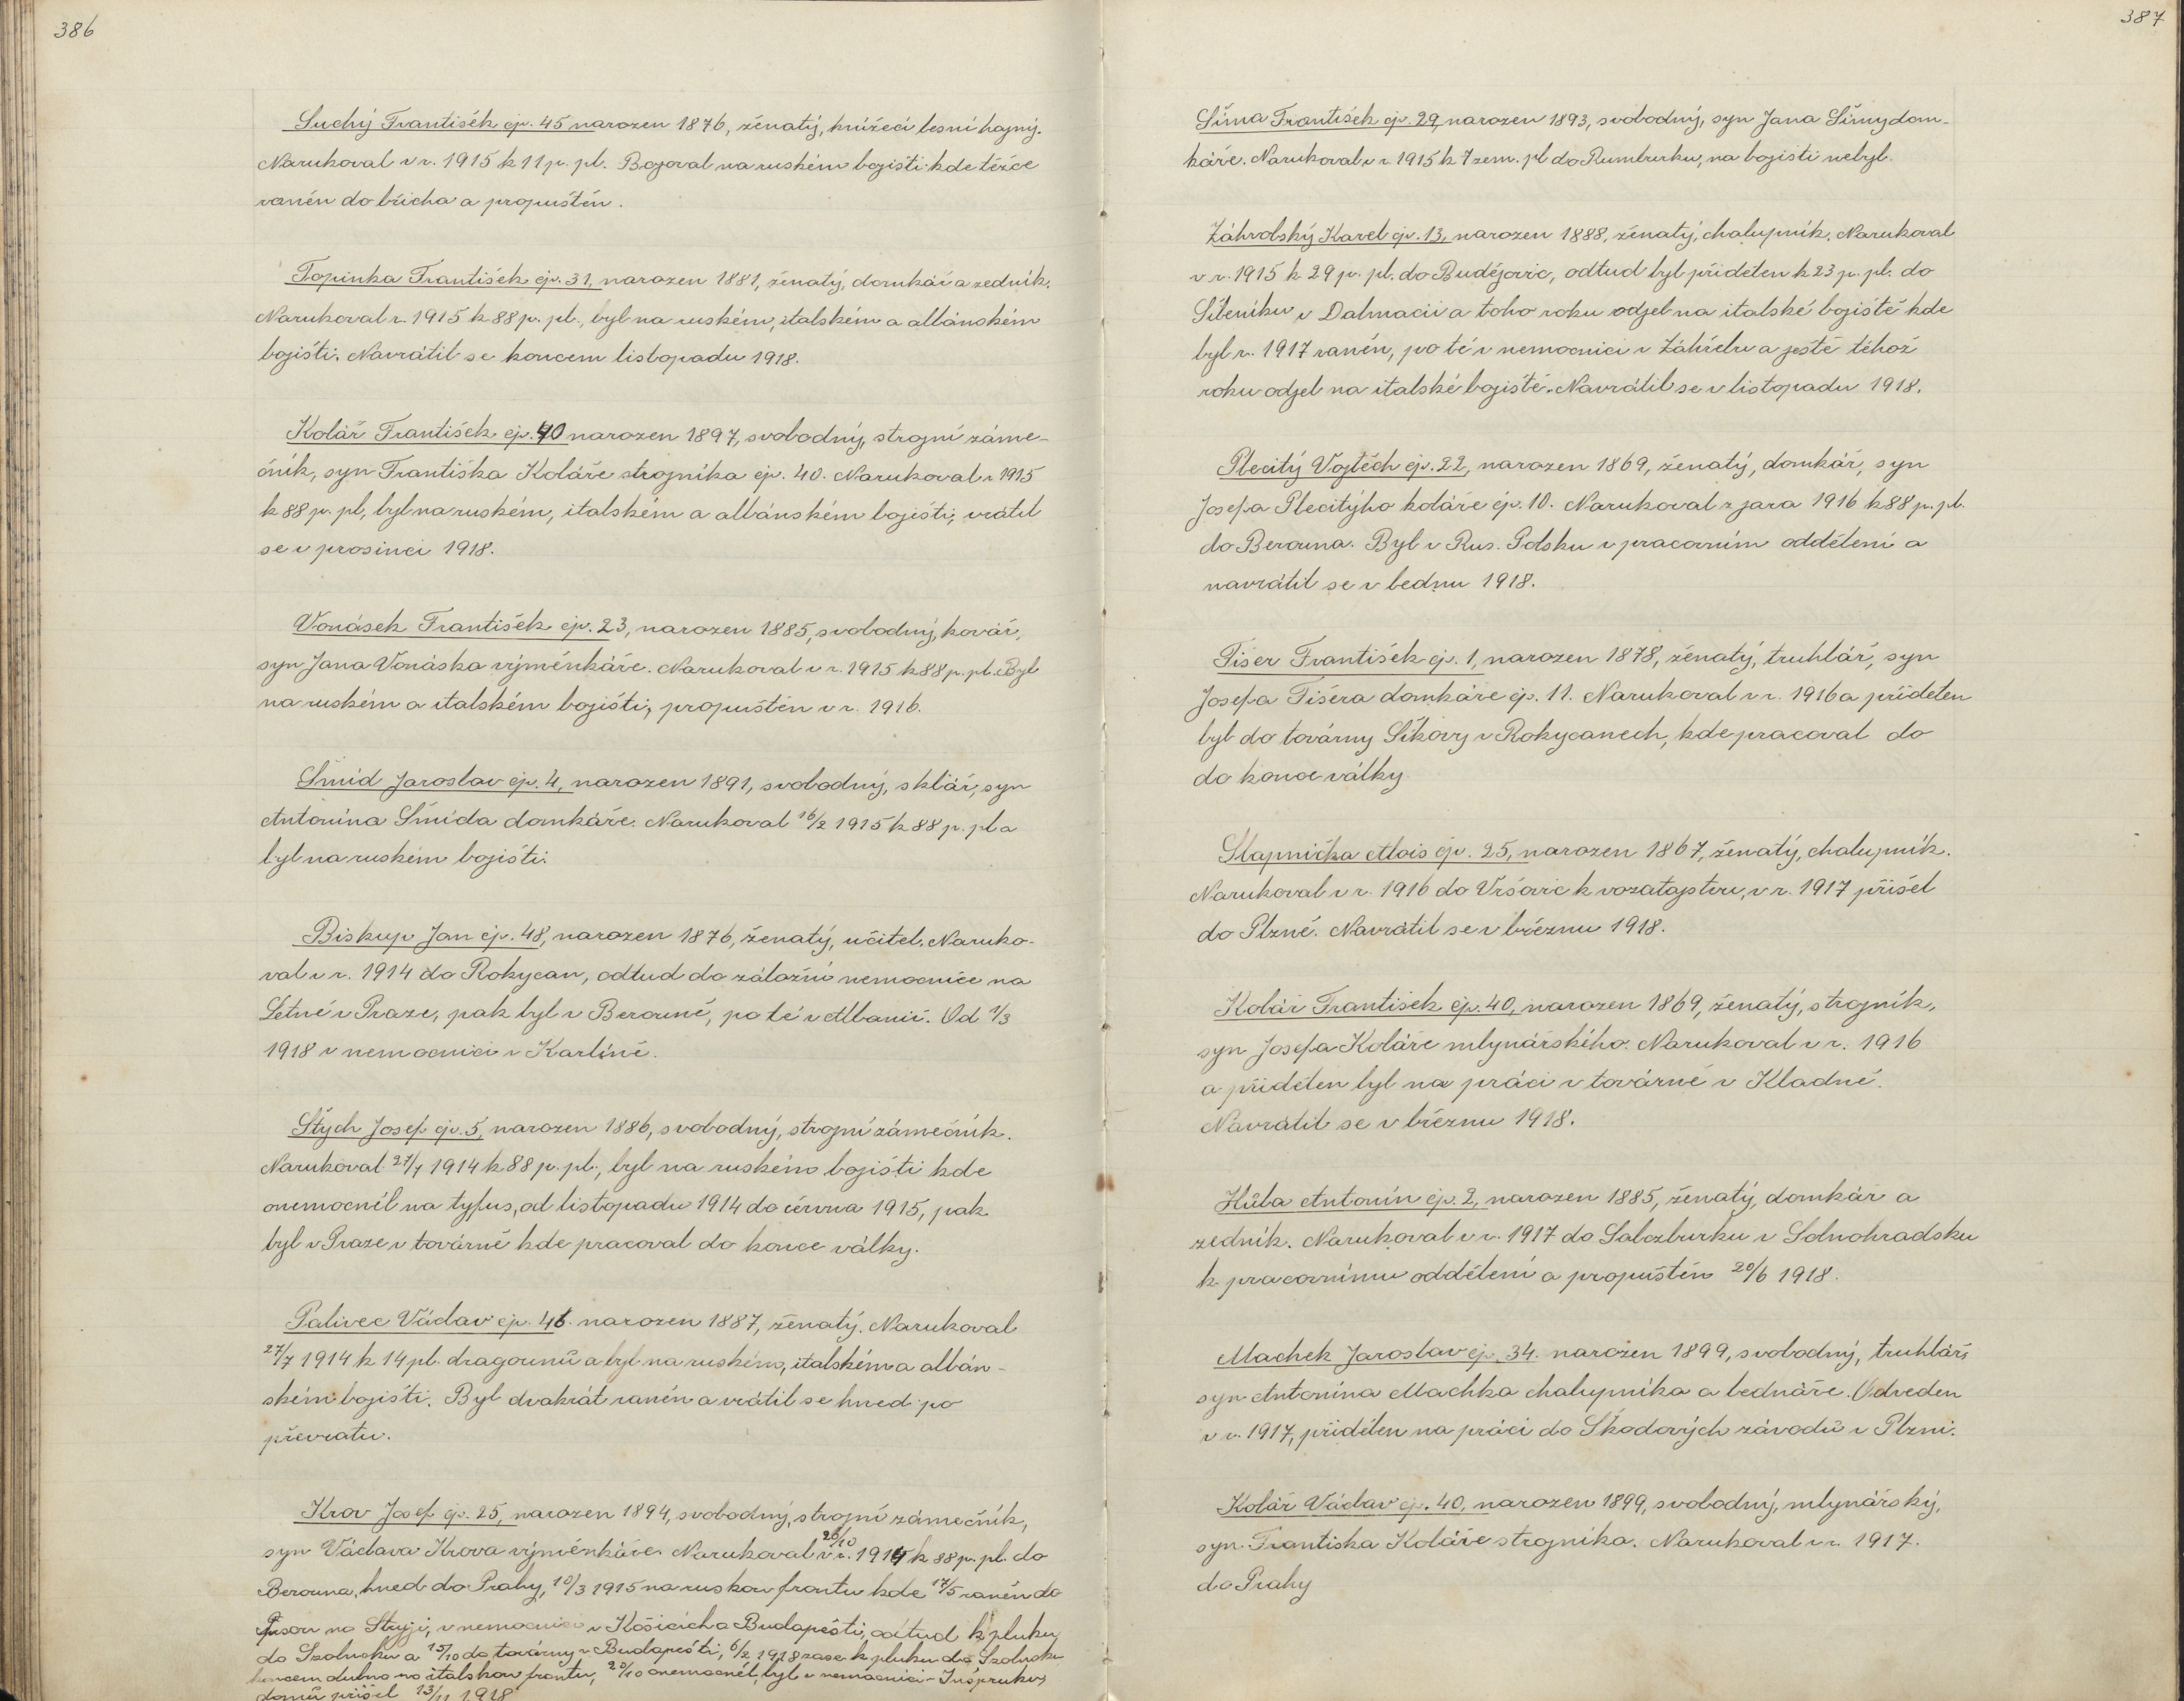 386
Suchý František čp. 45 narozen 1876, ženatý, knížecí lesní hajný.
Narukoval v r. 1915 k 11 p. pl. Bojoval na ruském bojišti kde těžce
raněn do břicha a propuštěn.
Topinka František čp. 31, narozen 1881, ženatý, domkář a zedník.
Narukoval r. 1915 k 88 p. pl., byl na ruském, italském a albánském
bojišti. Navrátil se koncem listopadu 1918.
Kolář František čp. 40 narozen 1897, svobodný, strojní záme-
čník, syn Františka Koláře strojníka čp. 40. Narukoval r 1915
k 88 p. pl, byl na ruském, italském a albánském bojišti, vrátil
se v prosinci 1918.
Vonásek František čp. 23, narozen 1885, svobodný, kovář,
syn Jana Vonáska výměnkáře. Narukoval v r. 1915 k 88 p. pl. Byl
na ruském a italském bojišti, propuštěn v r. 1916.
Šmíd Jaroslav čp. 4, narozen 1891, svobodný, sklář, syn
Antonína Šmída domkáře. Narukoval 16/2 1915 k 88 p. pl a
byl na ruském bojišti.
Biskup Jan čp. 48, narozen 1876, ženatý, učitel. Naruko-
val v r. 1914 do Rokycan, odtud do záložní nemocnice na
Letné v Praze, pak byl v Berouně, po té v Albanii. Od 1/3
1918 v nemocnici v Karlíně.
Štych Josef čp. 5, narozen 1886, svobodný, strojní zámečník.
Narukoval 27/7 1914 k 88 p. pl., byl na ruském bojišti kde
onemocněl na tyfus, od listopadu 1914 do června 1915, pak
byl v Praze v továrně kde pracoval do konce války.
Palivec Václav čp. 46 narozen 1887, ženatý. Narukoval
27/7 1914 k 14 pl. dragounů a byl na ruském, italském a albán-
ském bojišti. Byl dvakrát raněn a vrátil se hned po
převratu.
Krov Josef čp. 25, narozen 1894, svobodný, strojní zámečník,
syn Václava Krova výměnkáře. Narukoval 26/10 v r. 1914 k 88 p. pl. do
Berouna, hned do Prahy, 10/3 1915 na ruskou frontu kde 17/5 raněn do
na Stryji, v nemocnici v Košicích a Budapešti, odtud k pluku
do Szolnoku a 15/10 do továrny v Budapešti, 6/2 1918 zase k pluku do Szolnoku
koncem dubna na italskou frontu, 20/10 onemocněl, byl v nemocnici v Inšpruku,
domů přišel 13/11 1918
387
Šíma František čp. 29, narozen 1893, svobodný, syn Jana Šímy dom-
káře. Narukoval v r. 1915 k 7 zem. pl do Rumburku, na bojišti nebyl.
Záhrobský Karel čp. 13, narozen 1888, ženatý, chalupník. Narukoval
v r. 1915 k 29 p. pl. do Budějovic, odtud byl přidělen k 23 p. pl. do
Šibeniku v Dalmacii a toho roku odjel na italské bojiště kde
byl r. 1917 raněn, po té v nemocnici v Záhřebu a ještě téhož
roku odjel na italské bojiště. Navrátil se v listopadu 1918.
Plecitý Vojtěch čp. 22, narozen 1869, ženatý, domkář, syn
Josefa Plecitýho koláře čp. 10. Narukoval z jara 1916 k 88 p. pl.
do Berouna. Byl v Rus. Polsku v pracovním oddělení a
navrátil se v lednu 1918.
Tišer František čp. 1, narozen 1878, ženatý, truhlář, syn
Josefa Tišera domkáře čp. 11. Narukoval v r. 1916 a přidělen
byl do továrny Šikovy v Rokycanech, kde pracoval do
do konce války
Slapnička Alois čp. 25, narozen 1867, ženatý, chalupník.
Narukoval v r. 1916 do Vršovic k vozatajstvu, v r. 1917 přišel
do Plzně. Navrátil se v březnu 1918.
Kolář František čp. 40, narozen 1869, ženatý, strojník,
syn Josefa Koláře mlynářského. Narukoval v r. 1916
a přidělen byl na práci v továrně v Kladně.
Navrátil se v březnu 1918.
Hůla Antonín čp. 2, narozen 1885, ženatý, domkář a
zedník. Narukoval v r. 1917 do Salczburku v Solnohradsku
k pracovnímu oddělení a propuštěn 20/6 1918.
Machek Jaroslav čp. 34. narozen 1899, svobodný, truhlář,
syn Antonína Machka chalupníka a bednáře. Odveden
v r. 1917, přidělen na práci do Škodových závodů v Plzni.
Kolář Václav čp. 40, narozen 1899, svobodný, mlynářský,
syn Františka Koláře strojníka. Narukoval v r. 1917.
do Prahy